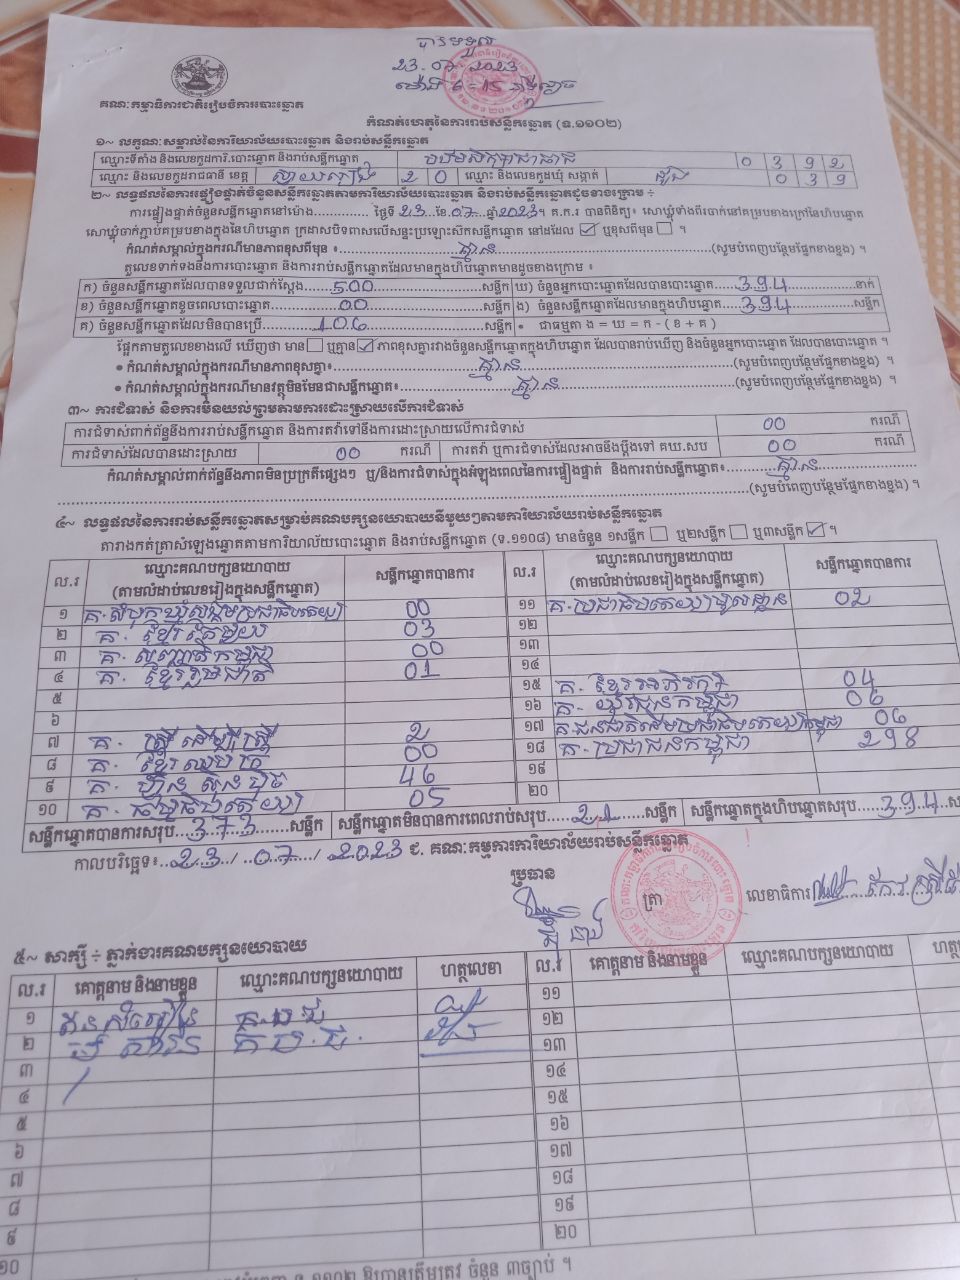 បានទទួល
23.07.2023
ម៉ោង 6-15 នាទីល្ងាច
គណៈកម្មាធិការជាតិរៀបចំការបោះឆ្នោត
កំណត់ហេតុនៃការរាប់សន្លឹកឆ្នោត (ទ.១១០២)
១~ លក្ខណៈសម្គាល់នៃការិយាល័យបោះឆ្នោត និងរាប់សន្លឹកឆ្នោត
ឈ្មោះទីតាំង និងលេខកូដការិ.បោះឆ្នោត និងរាប់សន្លឹកឆ្នោត 0 3 9 2
ឈ្មោះ និងលេខកូដរាជធានី ខេត្ត ស្វាយរៀង 2 0 ឈ្មោះ និងលេខកូដឃុំ សង្កាត់ 0 3 9
២~ លទ្ធផលនៃការផ្ទៀងផ្ទាត់ចំនួនសន្លឹកឆ្នោតតាមការិយាល័យបោះឆ្នោត និងរាប់សន្លឹកឆ្នោតដូចខាងក្រោម ÷
ការផ្ទៀងផ្ទាត់ចំនួនសន្លឹកឆ្នោតនៅម៉ោង.............. ថ្ងៃទី 23 ...ខែ.07...ឆ្នាំ.2023។ គ.ក.រ បានពិនិត្យ៖ សោឃ្លុំទាំងពីរចាក់នៅគម្របខាងក្រៅនៃហិបឆ្នោត
សោឃ្លុំចាក់ភ្ជាប់គម្របខាងក្នុងនៃហិបឆ្នោត ក្រដាសបិទពាសលើសន្ទះប្រឡោះស៊ីកសន្លឹកឆ្នោត នៅដដែល ☑ ឬខុសពីមុន ☐ ។
កំណត់សម្គាល់ក្នុងករណីមានភាពខុសពីមុន ៖ គ្មាន (សូមបំពេញបន្ថែមផ្នែកខាងខ្នង) ។
តួលេខទាក់ទងនឹងការបោះឆ្នោត និងការរាប់សន្លឹកឆ្នោតដែលមានក្នុងហិបឆ្នោតមានដូចខាងក្រោម ៖
ក) ចំនួនសន្លឹកឆ្នោតដែលបានទទួលជាក់ស្តែង 500 សន្លឹក ឃ) ចំនួនអ្នកបោះឆ្នោតដែលបានបោះឆ្នោត 394 នាក់
ខ) ចំនួនសន្លឹកឆ្នោតខូចពេលបោះឆ្នោត 00 សន្លឹក ង) ចំនួនសន្លឹកឆ្នោតដែលមានក្នុងហិបឆ្នោត 394 សន្លឹក
គ) ចំនួនសន្លឹកឆ្នោតដែលមិនបានប្រើ 106 សន្លឹក • ជាធម្មតា ង = ឃ = ក - ( ខ + គ )
ផ្អែកតាមតួលេខខាងលើ ឃើញថា មាន ☐ ឬគ្មាន ☑ ភាពខុសគ្នារវាងចំនួនសន្លឹកឆ្នោតក្នុងហិបឆ្នោត ដែលបានរាប់ឃើញ និងចំនួនអ្នកបោះឆ្នោត ដែលបានបោះឆ្នោត ។
• កំណត់សម្គាល់ក្នុងករណីមានភាពខុសគ្នា៖ គ្មាន (សូមបំពេញបន្ថែមផ្នែកខាងខ្នង) ។
• កំណត់សម្គាល់ក្នុងករណីមានវត្ថុមិនមែនជាសន្លឹកឆ្នោត៖ គ្មាន (សូមបំពេញបន្ថែមផ្នែកខាងខ្នង) ។
៣~ ការជំទាស់ និងការមិនយល់ព្រមតាមការដោះស្រាយលើការជំទាស់
ការជំទាស់ពាក់ព័ន្ធនឹងការរាប់សន្លឹកឆ្នោត និងការតវ៉ាទៅនឹងការដោះស្រាយលើការជំទាស់ 00 ករណី
ការជំទាស់ដែលបានដោះស្រាយ 00 ករណី ការតវ៉ា ឬការជំទាស់ដែលអាចនឹងប្តឹងទៅ គឃ.សប 00 ករណី
កំណត់សម្គាល់ពាក់ព័ន្ធនឹងភាពមិនប្រក្រតីផ្សេងៗ ឬ/និងការជំទាស់ក្នុងអំឡុងពេលនៃការផ្ទៀងផ្ទាត់ និងការរាប់សន្លឹកឆ្នោត៖ គ្មាន
(សូមបំពេញបន្ថែមផ្នែកខាងខ្នង) ។
៤~ លទ្ធផលនៃការរាប់សន្លឹកឆ្នោតសម្រាប់គណបក្សនយោបាយនីមួយៗតាមការិយាល័យរាប់សន្លឹកឆ្នោត
តារាងកត់ត្រាសំឡេងឆ្នោតតាមការិយាល័យបោះឆ្នោត និងរាប់សន្លឹកឆ្នោត (ទ.១១០៨) មានចំនួន ១សន្លឹក ☐ ឬ២សន្លឹក ☐ ឬ៣សន្លឹក ☑ ។
ល.រ ឈ្មោះគណបក្សនយោបាយ (តាមលំដាប់លេខរៀងក្នុងសន្លឹកឆ្នោត) សន្លឹកឆ្នោតបានការ ល.រ ឈ្មោះគណបក្សនយោបាយ (តាមលំដាប់លេខរៀងក្នុងសន្លឹកឆ្នោត) សន្លឹកឆ្នោតបានការ
១ គ.សំបុកឃ្មុំសង្គមប្រជាធិបតេយ្យ 00 ១១ គ.ប្រជាធិបតេយ្យមូលដ្ឋាន 02
២ គ. ខ្មែរតែមួយ 03 ១២
៣ គ. បញ្ញាតិកម្ពុជា 00 ១៣
៤ គ. ខ្មែររួបរួមជាតិ 01 ១៤
៥ ១៥ គ. ខ្មែរអភិរក្ស 04
៦ ១៦ គ. យុវជនកម្ពុជា 06
៧ គ. ស្ត្រីដើម្បីស្ត្រី 2 ១៧ គ.ជនជាតិដើមប្រជាធិបតេយ្យកម្ពុជា 06
៨ គ. ខ្មែរឈប់ក្រ 00 ១៨ គ. ប្រជាជនកម្ពុជា 298
៩ គ. ហ៊្វុនស៊ិនប៉ិច 46 ១៩
១០ គ. ធម្មាធិបតេយ្យ 05 ២០
សន្លឹកឆ្នោតបានការសរុប 373 សន្លឹក សន្លឹកឆ្នោតមិនបានការពេលរាប់សរុប 21 សន្លឹក សន្លឹកឆ្នោតក្នុងហិបឆ្នោតសរុប 394 សន្លឹក
កាលបរិច្ឆេទ៖ 23 / 07 / 2023 ជ. គណៈកម្មការការិយាល័យរាប់សន្លឹកឆ្នោត
ប្រធាន ត្រា លេខាធិការ
៥~ សាក្សី ÷ ភ្នាក់ងារគណបក្សនយោបាយ
ល.រ គោត្តនាម និងនាមខ្លួន ឈ្មោះគណបក្សនយោបាយ ហត្ថលេខា ល.រ គោត្តនាម និងនាមខ្លួន ឈ្មោះគណបក្សនយោបាយ
១ ១១
២ ១២
៣ ១៣
៤ ១៤
៥ ១៥
៦ ១៦
៧ ១៧
៨ ១៨
៩ ១៩
១០ ២០